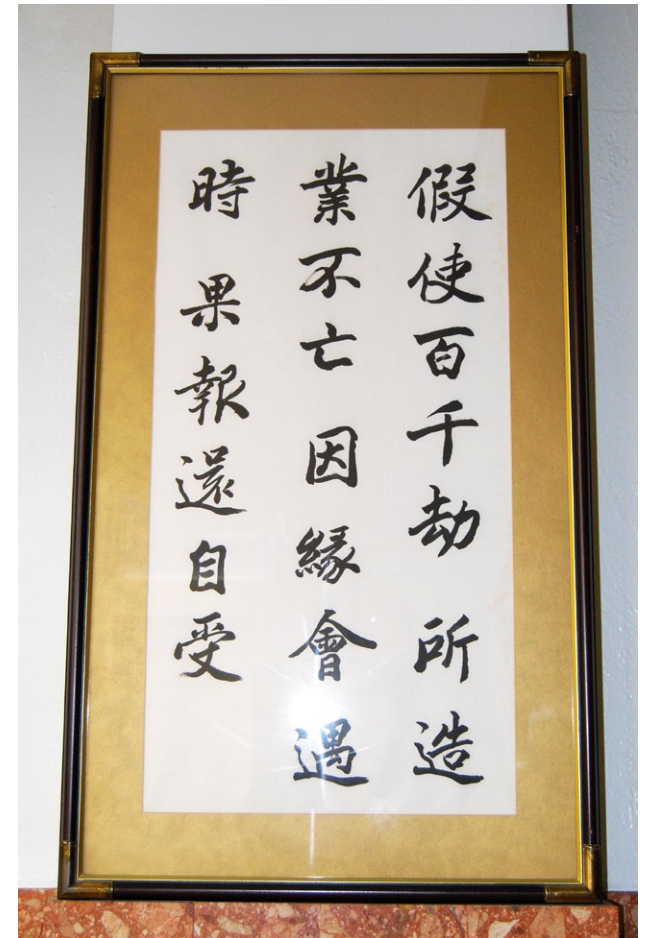 假使百千劫 所造
業不亡 因緣會遇
時 果報還自受